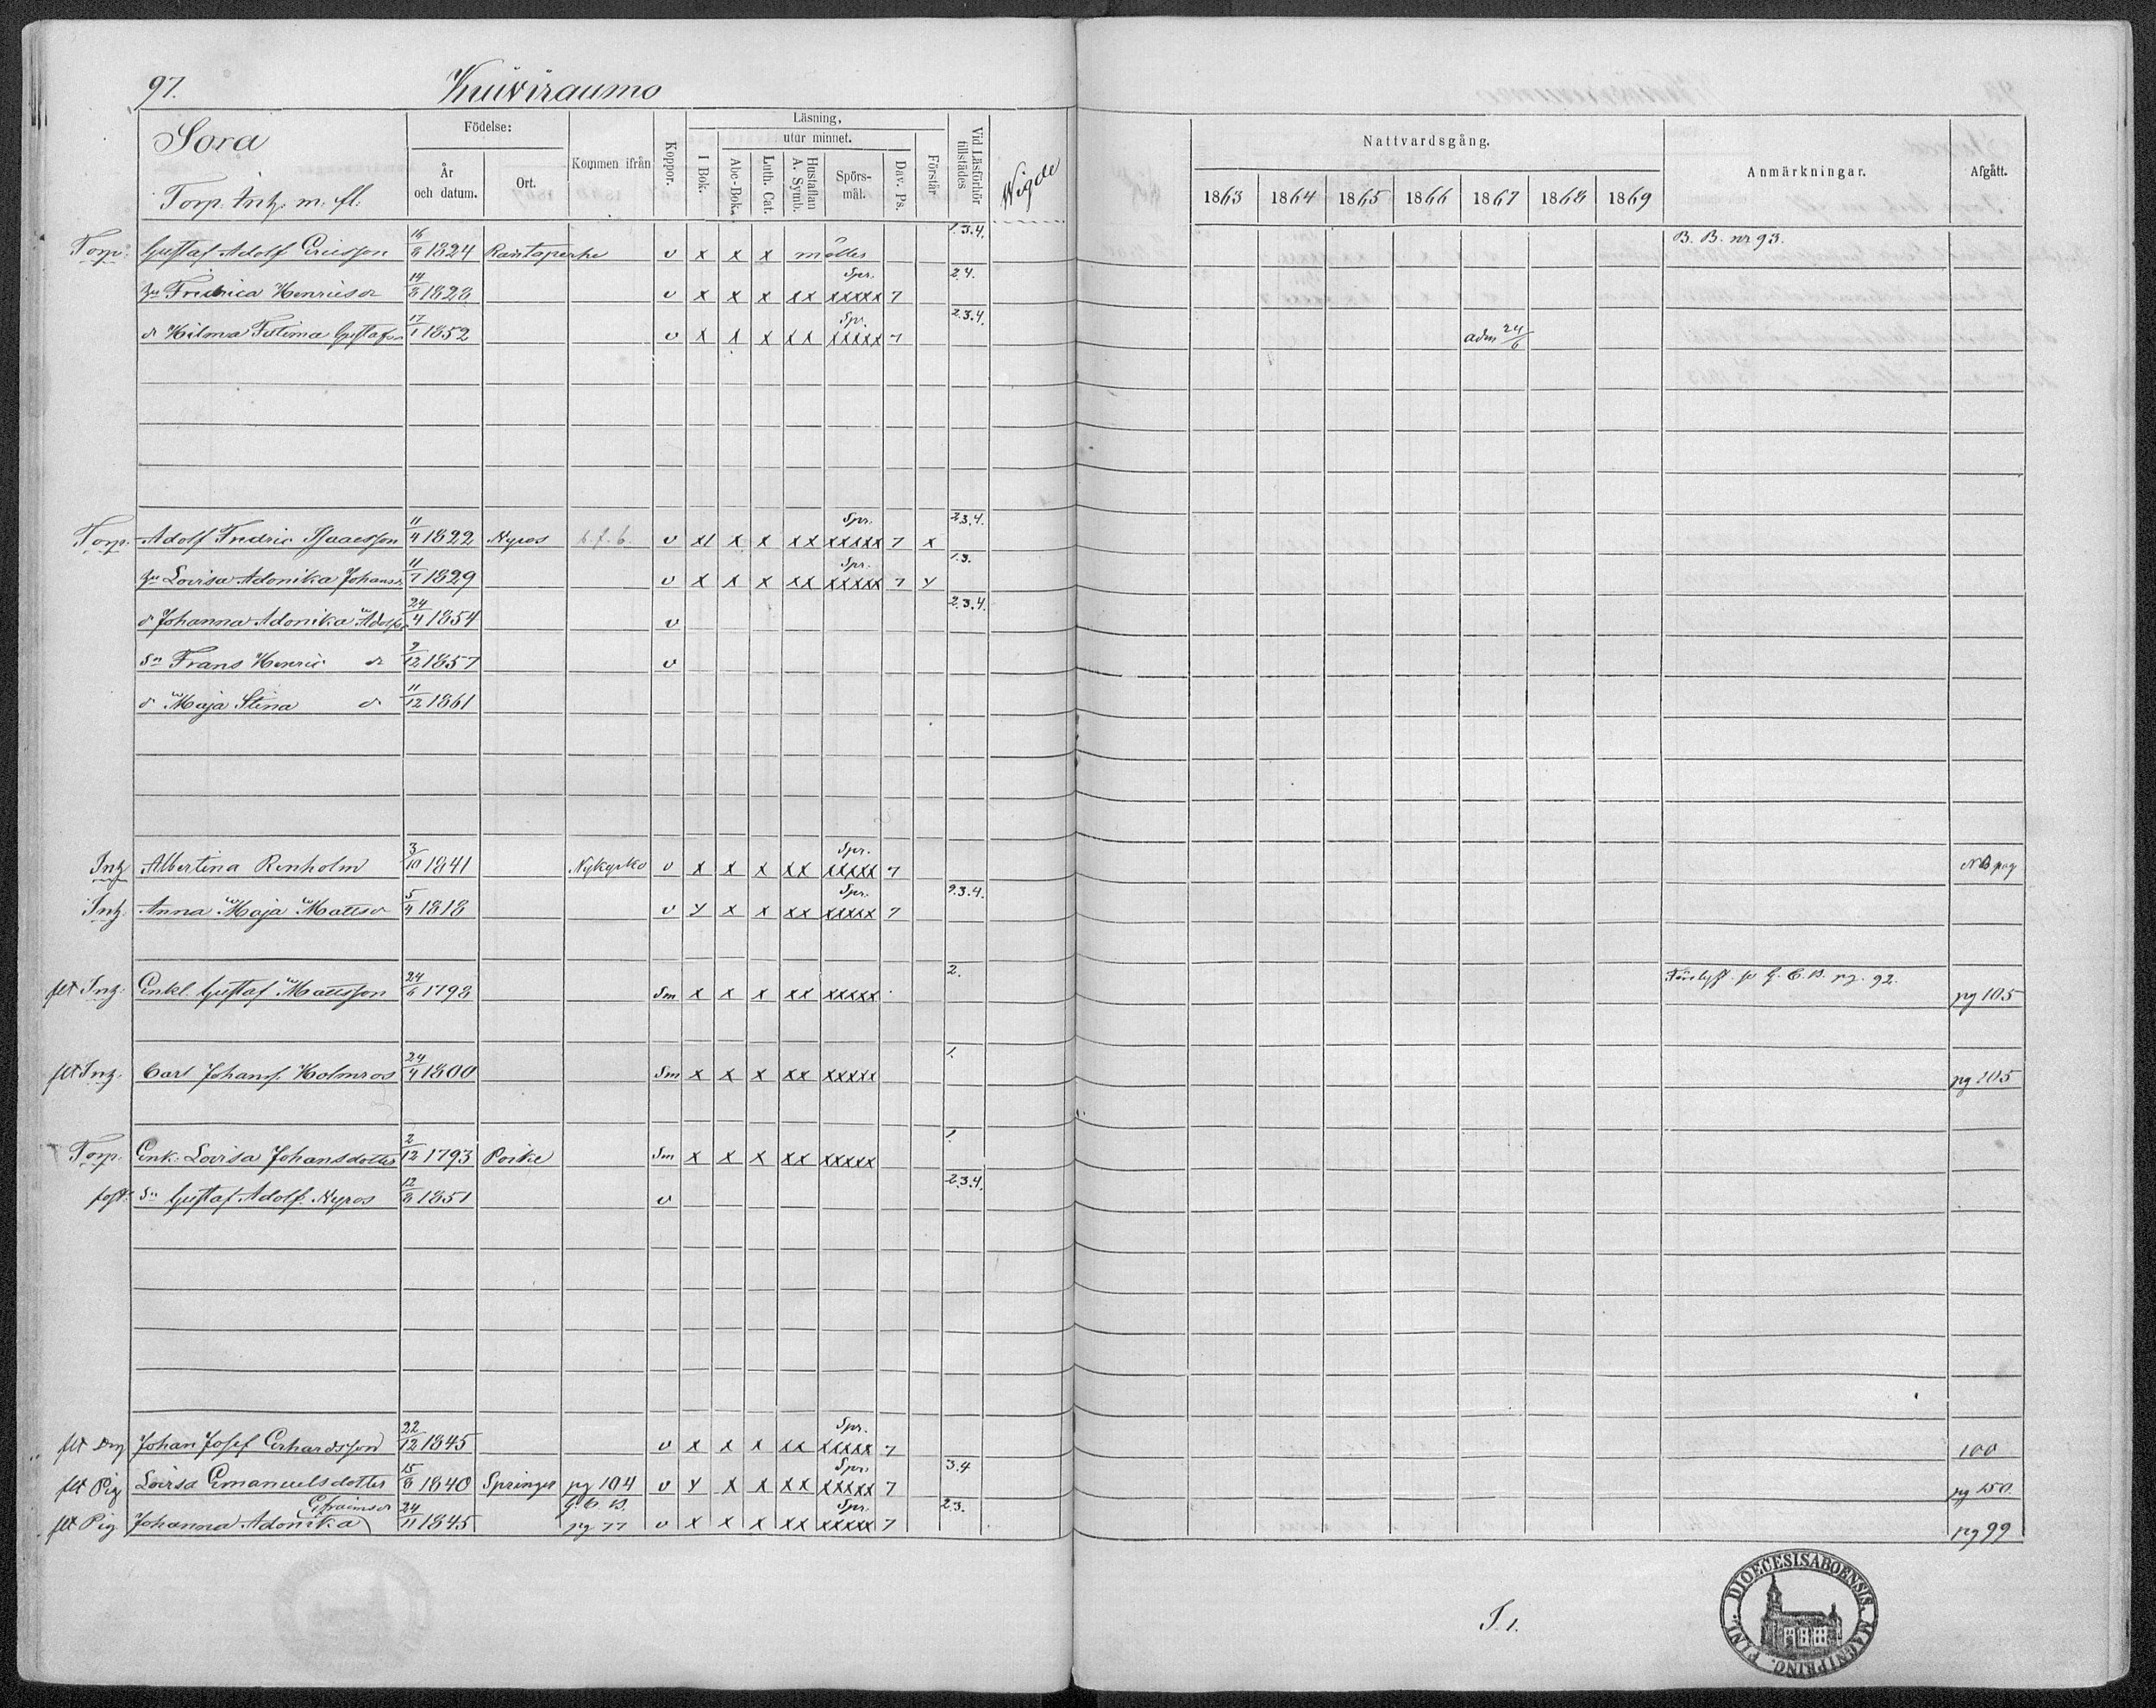 97. Kuiviraumo
Sora
Torp. Inh. m. fl.
Födelse: År och datum. Ort. Kommen ifrån Koppor. Läsning, I Bok. utur minnet. Abc-Bok. Luth. Cat. Hustaflan A. Symb. Spörs-mål. Dav. Ps. Förstår Vid Läsförhör tillstädes Wigde
Nattvardsgång. 1863 1864 1865 1866 1867 1868 1869 Anmärkningar. Afgått.
Torp. Gustaf Adolf Ericsson 16/8 1824 Rantaperhe v x x x 1.3.4. B. B. nr 93.
Fredrica Henricsdr 14/8 1828 v x x x xx xxxxx 7 Spr. 2.4.
dr Hilma Gustafsdr 17/1 1852 v x x x xx xxxxx 7 Spr. 2.3.4. adm 24/6
Torp. Adolf Fredric Isaacsson 11/4 1822 Nyros v x x x xx xxxxx 7 x Spr. 2.3.4.
hu Lovisa Adonika Johansdr 11/7 1829 v x x x xx xxxxx 7 Spr. 1.3.
dr Johanna Adonika Adolfsdr 24/4 1854 v 2.3.4.
Sn Frans Henric dr 9/12 1857 v
dr Maja Stina dr 11/12 1861
Inh Albertina Renholm 3/10 1841 Nykyrko v x x x xx xxxxx 7 Spr.
Inh. Anna Maja Mattsdr 5/4 1818 v x x x xx xxxxx 7 Spr. 2.3.4.
flt Inh. Enkl. Gustaf Mattsson 24/6 1798 Sm x x x xx xxxxx 2. G. C. B. pg. 92. pg 105
flt Inh. Carl Johans. Holmros 24/4 1800 Sm x x x xx xxxxx 1. pg 105
Torp. Enk. Lovisa Johansdotter 2/12 1793 Poike Sm x x x xx xxxxx 1.
Sn Gustaf Adolf Nyros 12/8 1851 v 2.3.4.
flt Drg Johan Josef Erhardsson 22/12 1845 v x x x xx xxxxx 7 Spr. 100
flt Pig Lovisa Emanuelsdotter 15/8 1840 Springer pg 104 v x x x xx xxxxx 7 Spr. 3.4 pg 150.
flt Pig Johanna Adonika Efraimsdr 24/11 1845 G. C. B. pg 77 v x x x xx xxxxx 7 Spr. 2.3. pg 99
DIOECESIS ABOENSIS. MAGNI PRINC. FINL.